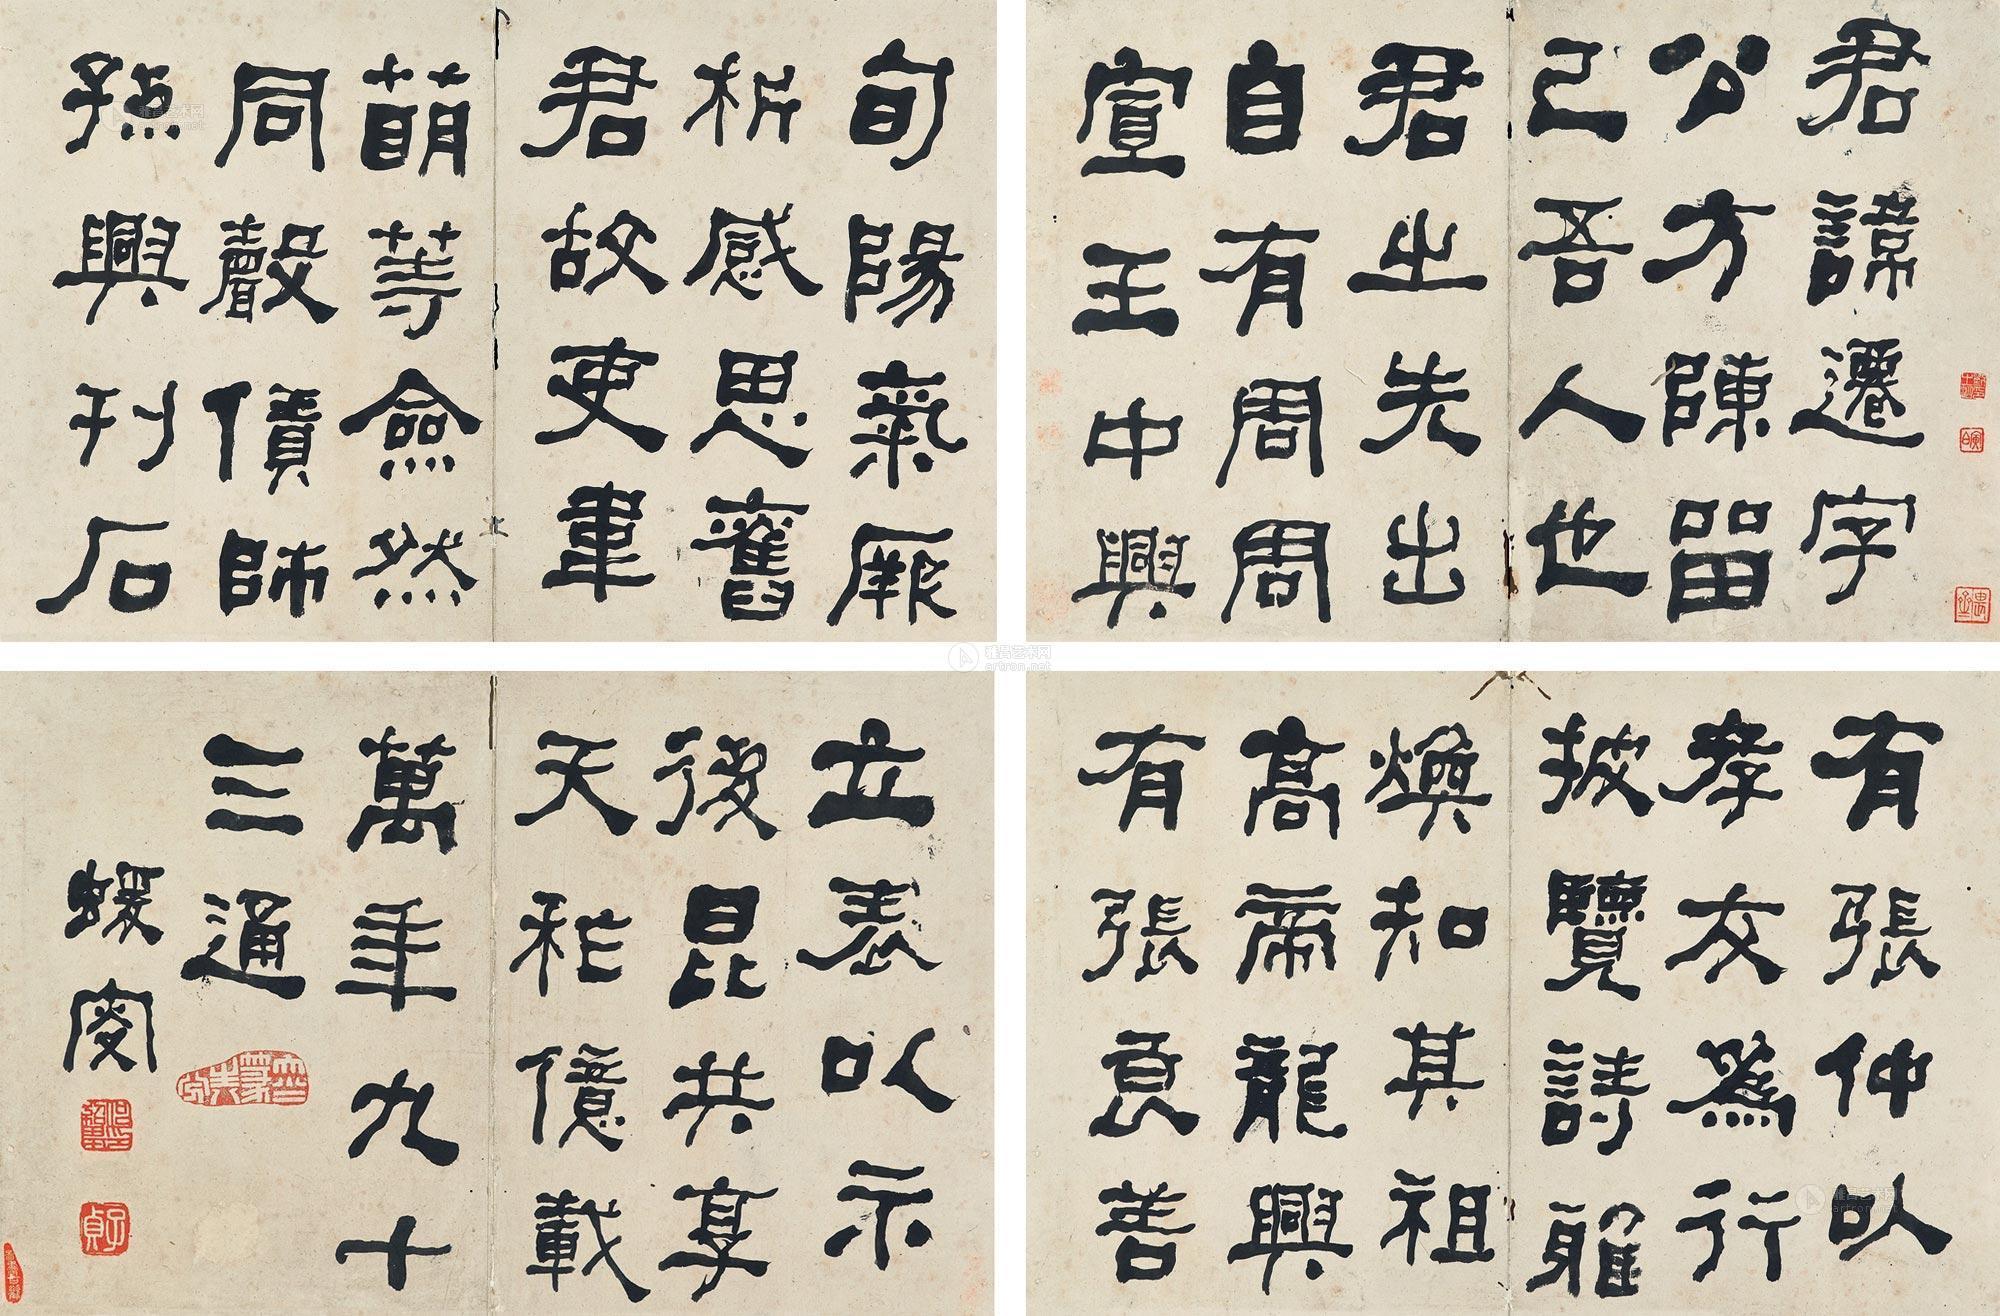 君諱遷字
公方陳留
己吾人也
君之先出
自有周周
宣王中興
有張仲以
孝友為行
披覽詩雅
煥知其祖
高帝龍興
有張良善
旬陽氣厥
析感思舊
君故吏韋
萌等僉然
同聲賃師
孫興刊石
立表以示
後昆共享
天祚億載
萬年九十
三通
蝯叟
子貞
雅昌艺术网
artron.net